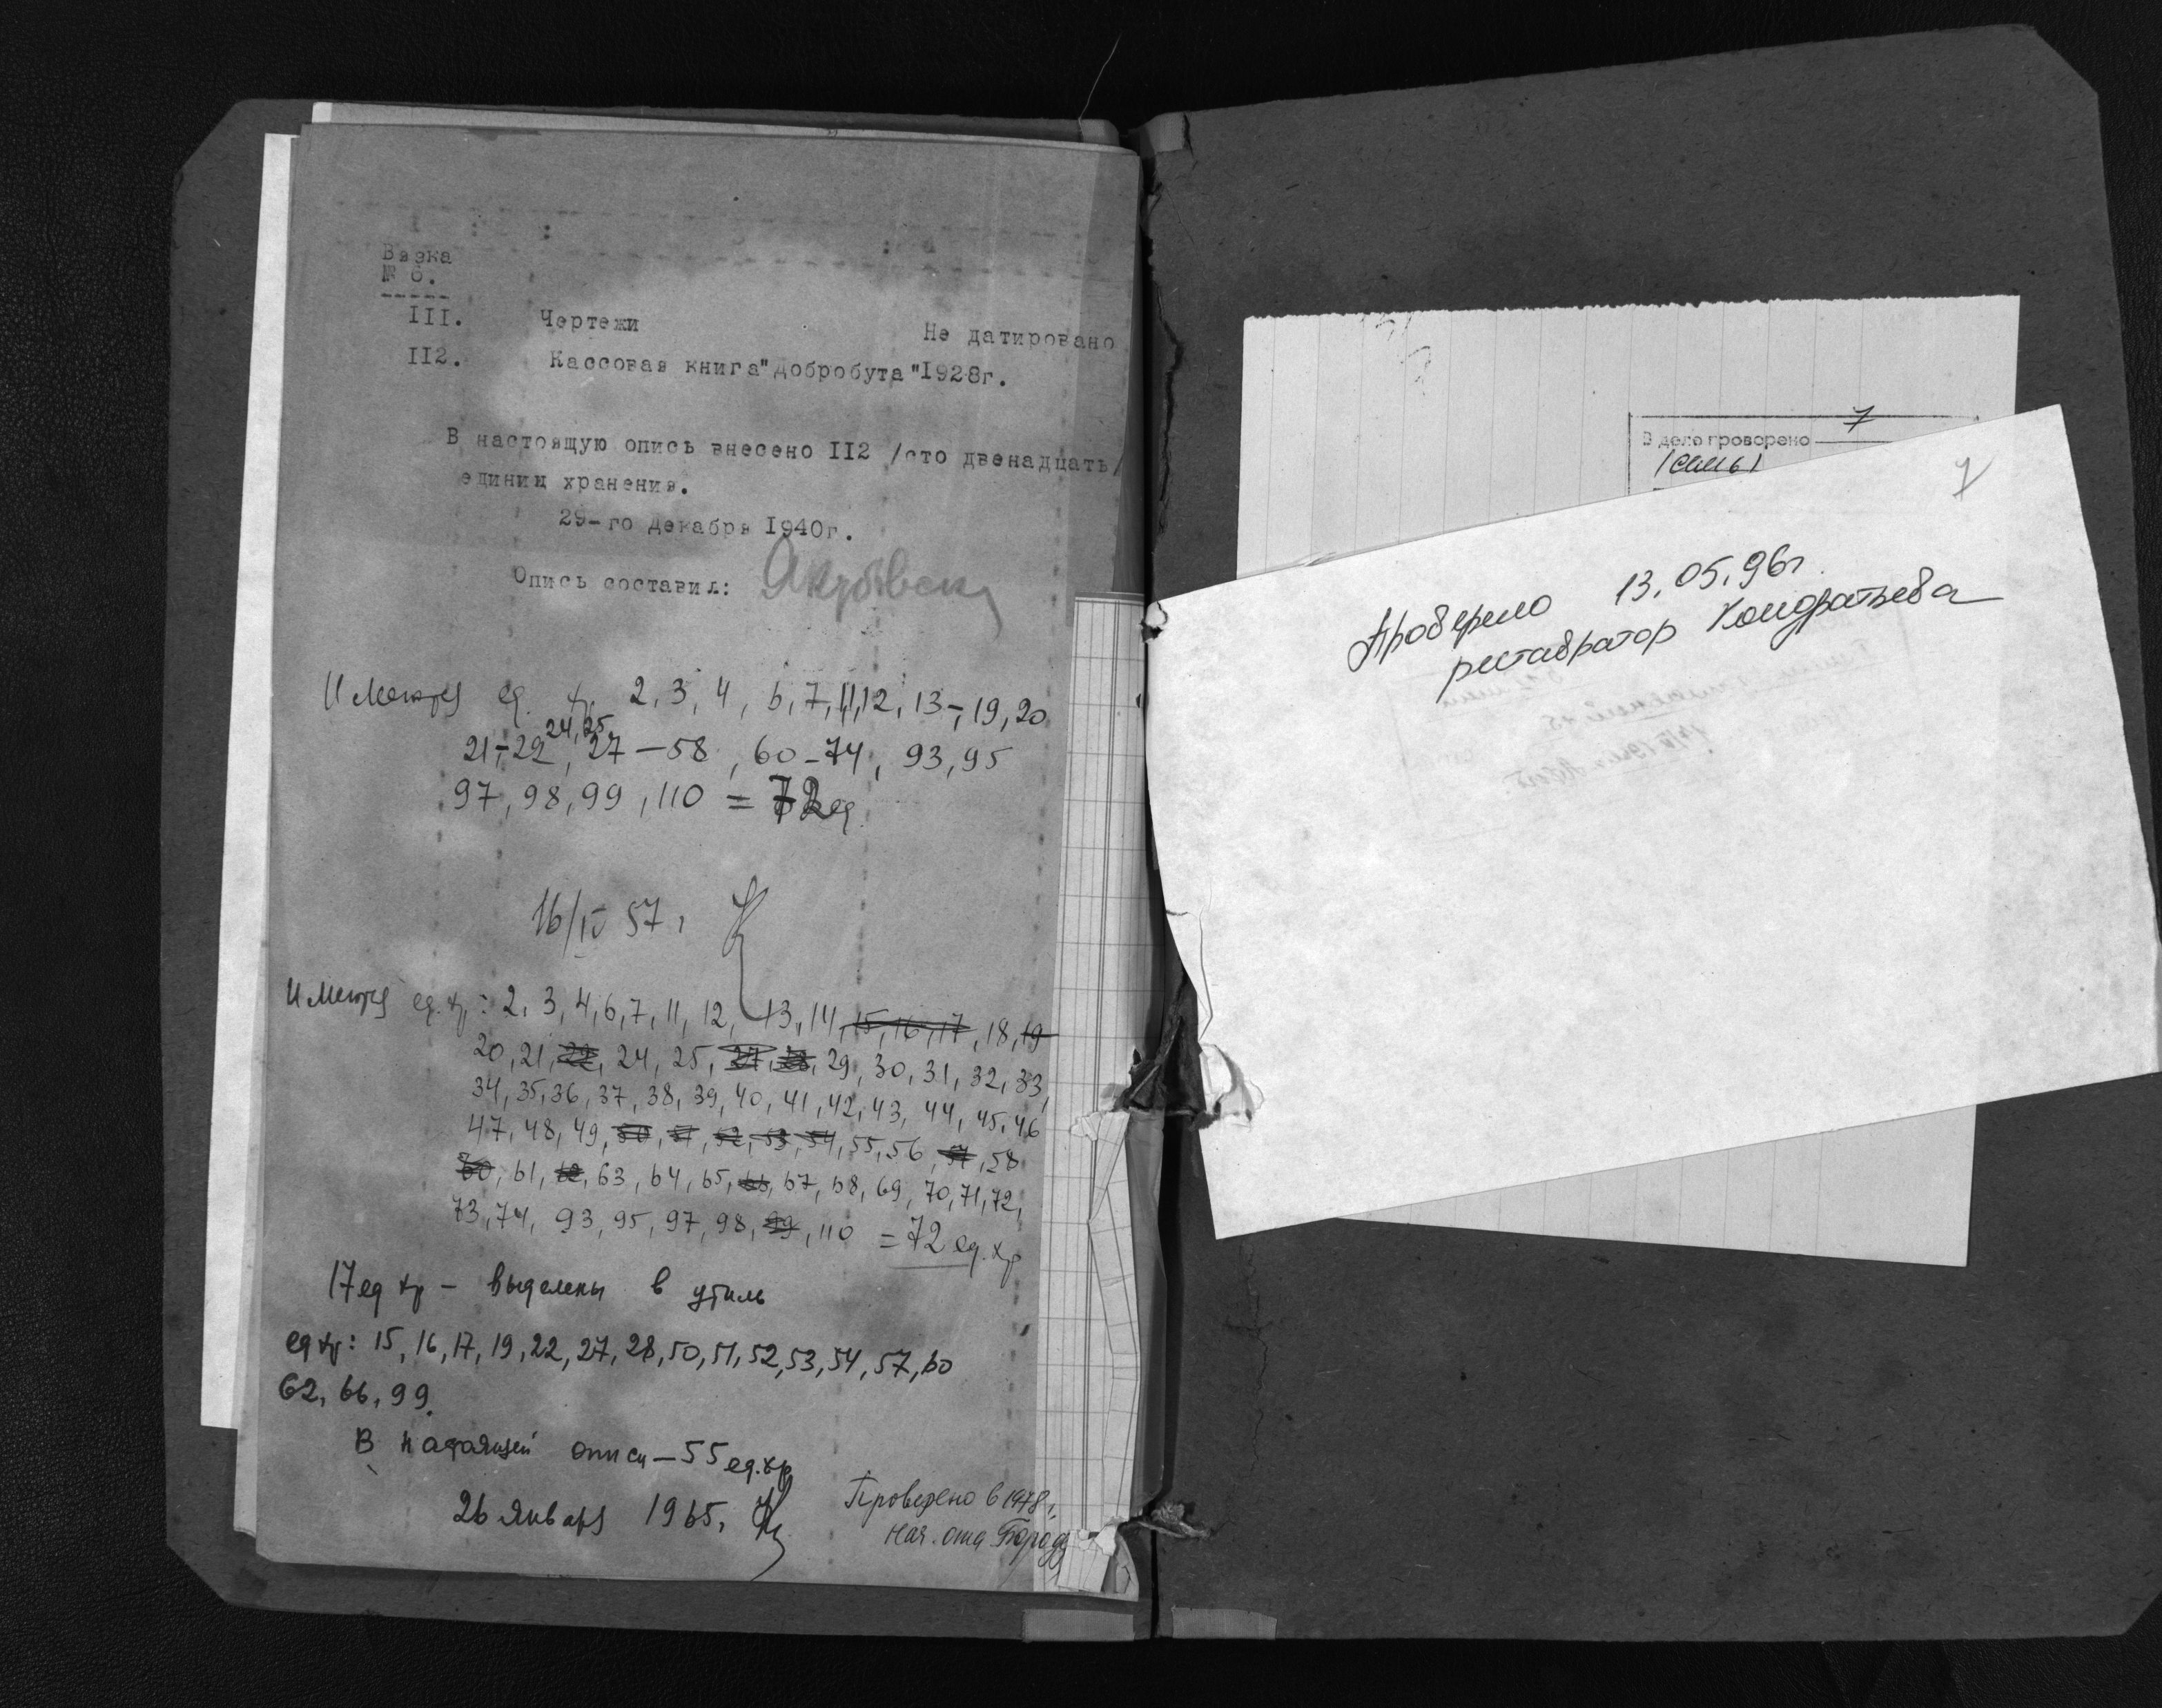 Вязка
№ 6.
III. Чертежи Не датировано
II2. Кассовая книга "Добробута" I928г.
В настоящую опись внесено II2 /сто двенадцать/
единиц хранения.
29-го декабря I940г.
Опись составил:
Имеются ед. хр. 2, 3, 4, 6, 7, 11, 12, 13-, 19, 20
21-22, 24, 25, 27-58, 60-74, 93, 95
97, 98, 99, 110 = 72 ед.
16/IV 57г.
Имеются ед. хр: 2, 3, 4, 6, 7, 11, 12, 13, 14, 15, 16, 17, 18, 19
20, 21, 22, 24, 25, 27, 28, 29, 30, 31, 32, 33,
34, 35, 36, 37, 38, 39, 40, 41, 42, 43, 44, 45, 46
47, 48, 49, 50, 51, 52, 53, 54, 55, 56, 57, 58
60, 61, 62, 63, 64, 65, 66, 67, 68, 69, 70, 71, 72,
73, 74, 93, 95, 97, 98, 99, 110 = 72 ед. хр
17 ед хр - выделены в утиль
ед хр: 15, 16, 17, 19, 22, 27, 28, 50, 51, 52, 53, 54, 57, 60
62, 66, 99.
В настоящей описи - 55 ед. хр
26 января 1965г.
Проверено в 1978г.
нач. отд
7
В деле проверено
7
Проверено 13.05.96г.
реставратор Кондратьева